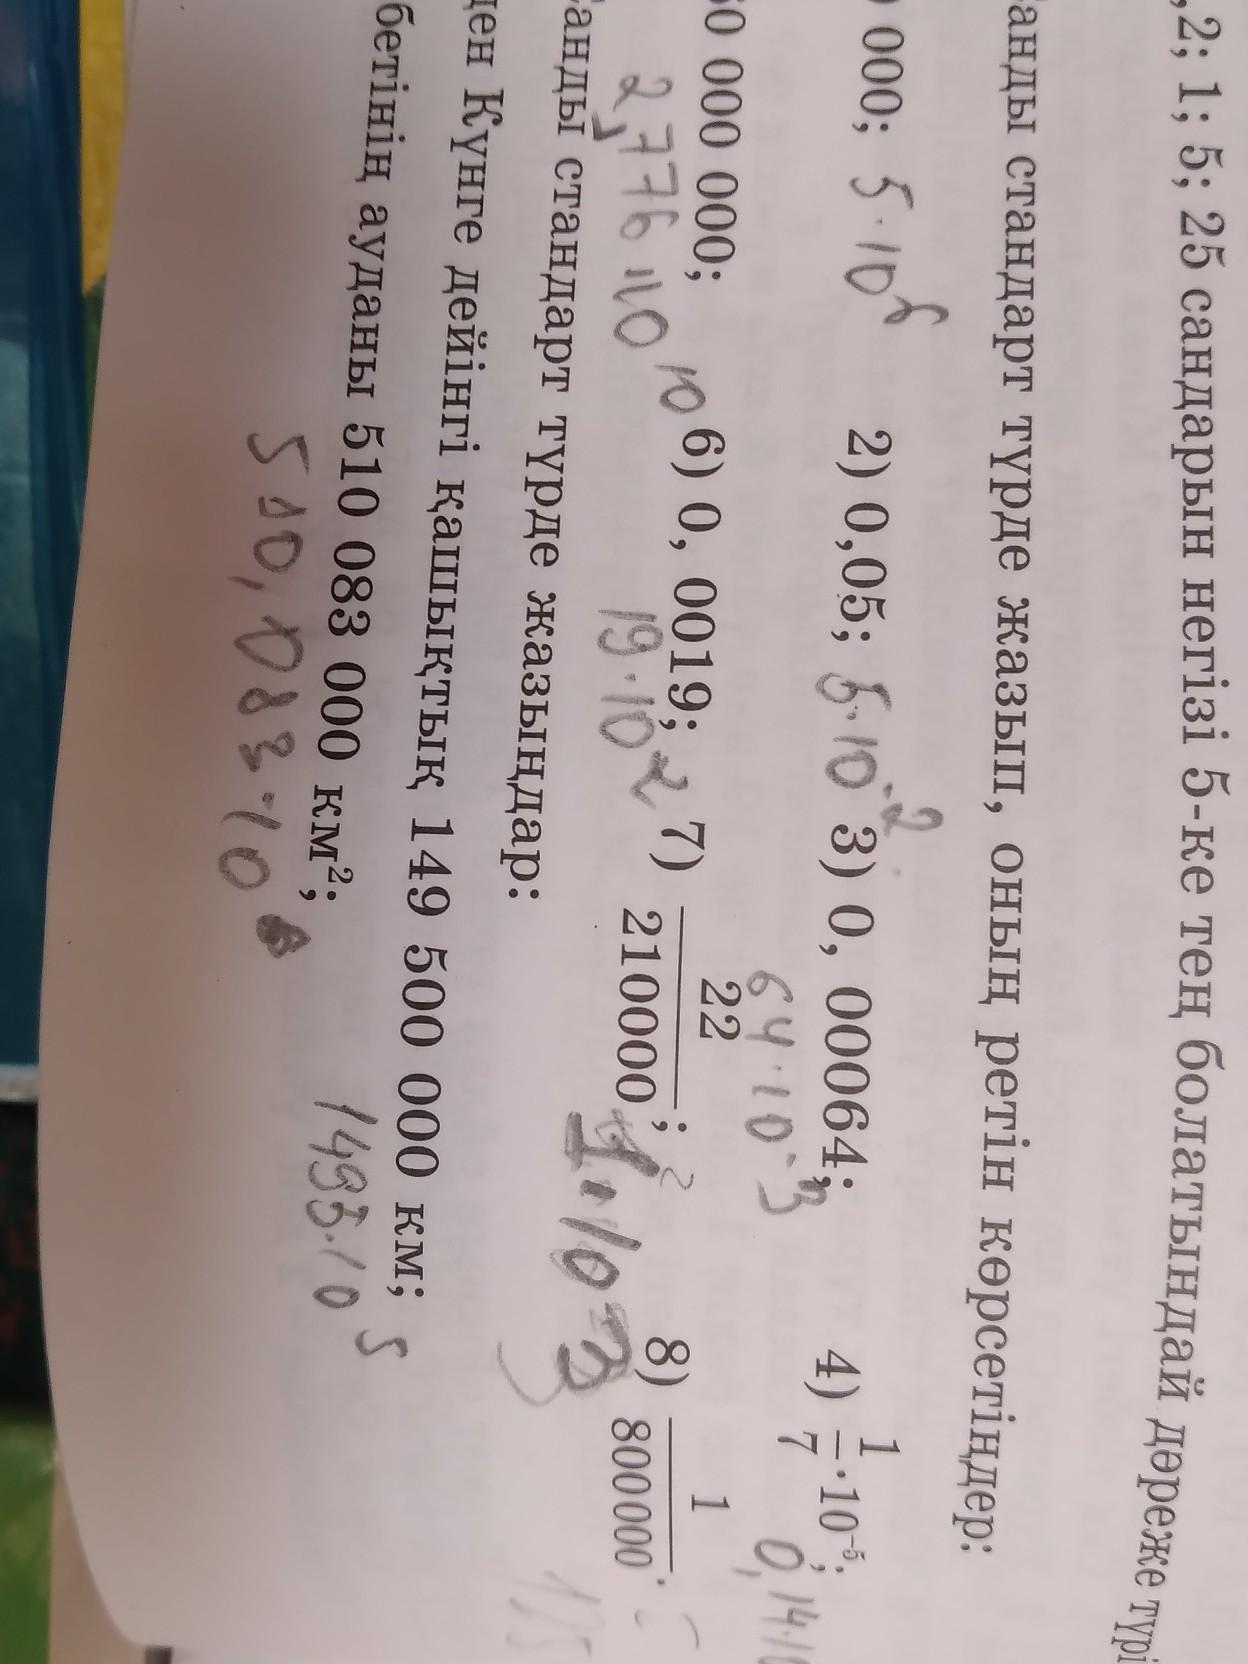 ,2; 1; 5; 25 сандарын негізі 5-ке тең болатындай дәреже түрі
анды стандарт түрде жазып, оның ретін көрсетіңдер:
000; 5·10⁶ 2) 0,05; 5·10⁻² 3) 0, 00064; 64·10⁻³ 4) 1/7·10⁻⁵; 0,14·1
0 000 000; 2,776 10¹⁰ 6) 0, 0019; 19·10² 7) 22/210000; 1·10⁻³ 8) 1/800000.
анды стандарт түрде жазыңдар:
ден Күнге дейінгі қашықтық 149 500 000 км; 1495·10⁵
бетінің ауданы 510 083 000 км²;
510,083·10⁶